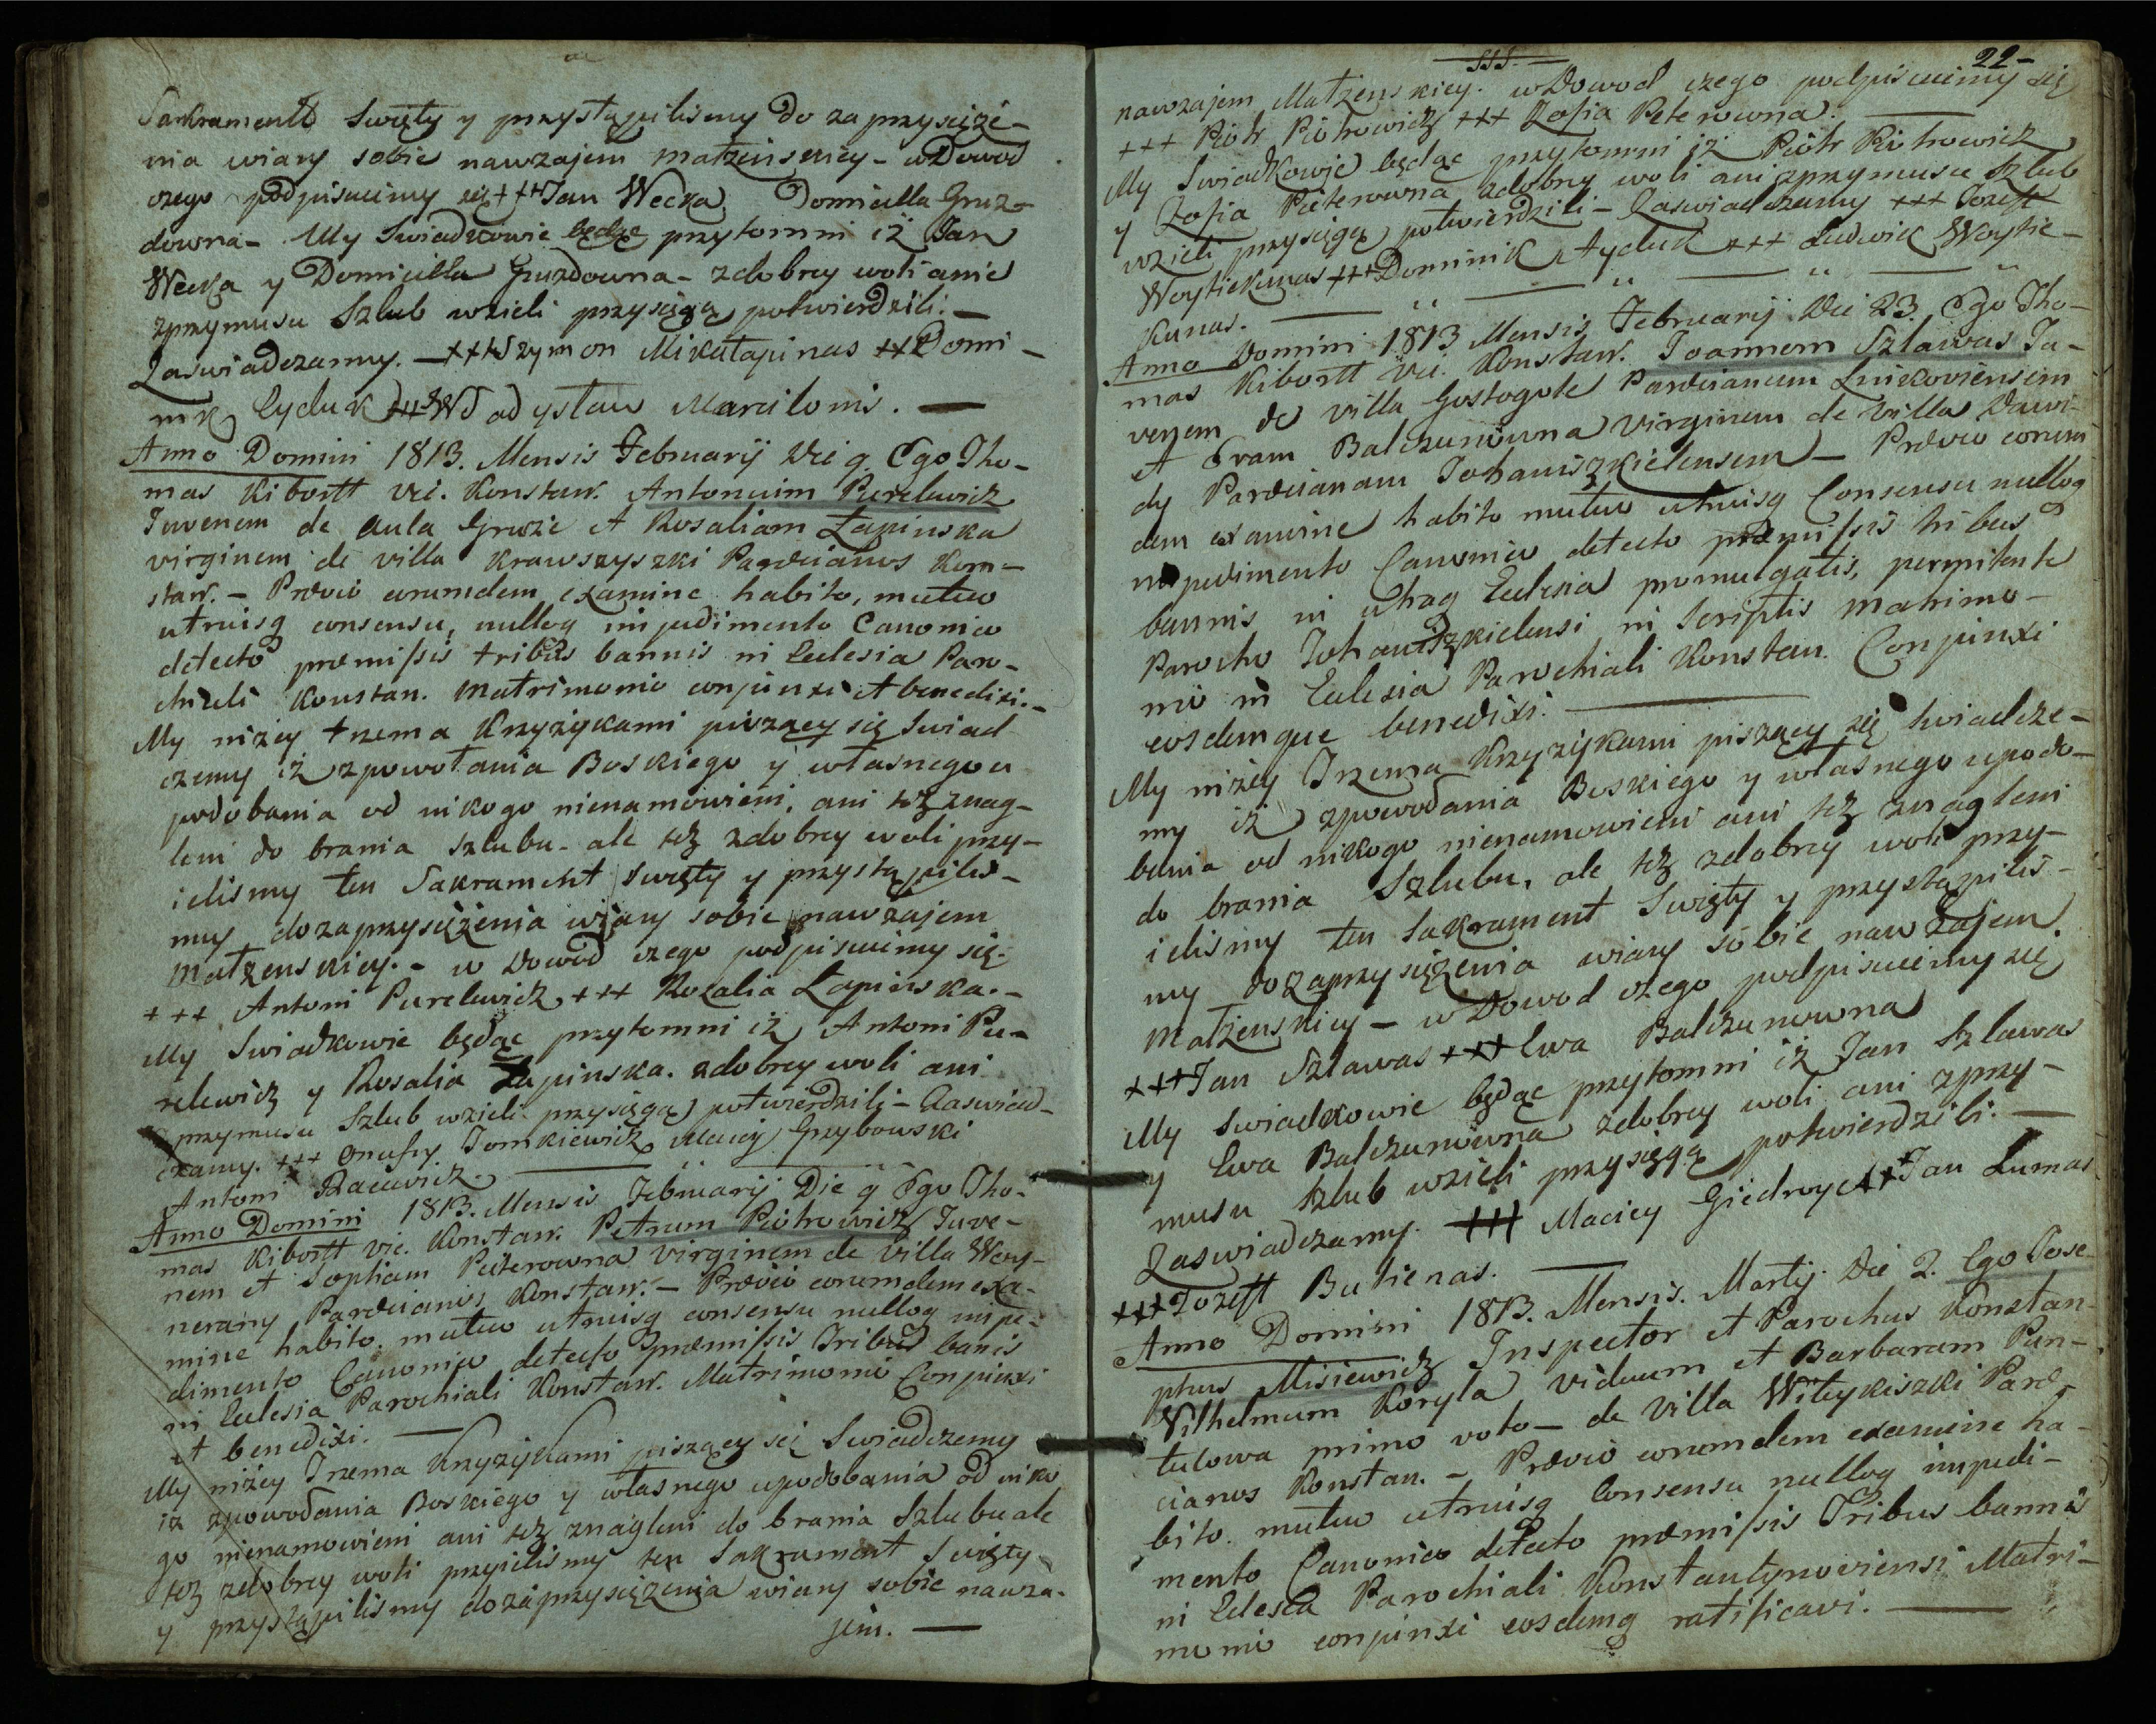 Sankrament Swięty y przystąpilismy do zaprzysięże-
nia wiary sobie nawzajem małżenskiey - w Dowod
czego podpisuiemy się +++ Jan Wecka, Domicilla Gruz-
downa - My Swiadkowie będąc przytomni iż Jan
Wecka y Domicilla Gruzdowna - zdobrey woli anie
zprzymusu Szlub wzieli przysięgą potwierdzili. -
Zaswiadczamy. - +++ Szymon Mikałapinas ++ Domi-
nik Cydzik +++ Wład ysław Marcilonis. —
Anno Domini 1813. Mensis Februarij Die 9. Ego Tho-
mas Kibortt vic. Konstan. Antonium Purelewicz
Juvenem de aula Gruże et Rosaliam Łapinska
virginem de villa Krawszyszki Parœcianos Kon-
stan. - Prævio eorumdem examine habito, mutuo
utriusq consensu, nulloq impedimento Canonico
detecto præmissis tribus bannis in Eclesia Paro-
chiali Konstan. Matrimonio conjunxi et benedixi. -
My niżey trzema Krzyżykami piszący się Swiad
czemy iż zpowołania Boskiego y własnego u
podobania od nikogo nienamowieni, ani też znag-
leni do brania szlubu - ale też zdobrey woli przy-
ielismy ten Sakrament swięty y przystąpilis-
my do zaprzysiężenia wiary sobie nawzajem
Małżenskiey. - w Dowod czego podpisuiemy się.
+++ Antoni Purelewicz +++ Rozalia Łapinska. -
My Swiadkowie będąc przytomni iż Antoni Pu-
relewicz y Rosalia Łapinska. zdobrey woli ani
zprzymusu Szlub wzieli przysięgą potwierdzili - Zaswiad-
czamy. +++ Onufry Tomkiewicz Maciey Grzybowski
Antoni Bacewicz. —
Anno Domini 1813. Mensis Februarij Die 9 Ego Tho-
mas Kibortt vic. Konstan. Petrum Piotrowicz Juve-
nem et Sophiam Peterowna virginem de villa Wey-
nerany Parœcianos Konstan. - Prævio eorumdem exa-
mine habito. mutuo utriusq consensu nulloq impe-
dimento Canonico detecto præmissis Tribus banis
in Eclesia Parochiali Konstan. Matrimonio Conjunxi
et benedixi. —
My niżey Trzema Krzyżykami piszący się Swiadczemy
iż zpowodania Boskiego y własnego upodobania od niko
go nienamowieni ani też znagleni do brania Szlubu ale
też zdobrey woli przyielismy ten Sakrament Swięty
y przystąpilismy do zaprzysiężenia wiary sobie nawza-
jem. —
SSS. —
22 -
nawzajem Małżenskiey. w Dowod czego podpisuiemy się
+++ Piotr Piotrowicz +++ Zofia Peterowna. —
My Swiadkowie będąc przytomni iż Piotr Piotrowicz
y Zofia Peterowna zdobrey woli ani zprzymusu Szlub
wzieli przysięgą potwierdzili - Zaswiadczamy +++ Jozeft
Woytiekunas +++ Dominik Ayduk +++ Ludwik Woytie-
kunas. —
Anno Domini 1813 Mensis Februarij Die 23. Ego Tho-
mas Kibortt vic. Konstan. Joannem Szlawas Ju-
venem de villa Gostogole Parœcianum Linkoviensem
et Evam Balczunowna virginem de villa Dawi-
dy Parœcianam Johaniszkielensem - Prævio eorum
dem examine habito mutuo utriusq Consensu nulloq
impedimento Canonico detecto præmissis tribus
bannis in utraq Eclesia promulgatis, permitente
Parocho Johaniszkielensi in Scriptis Matrimo-
nio in Eclesia Parochiali Konstan. Conjunxi
eosdemque benedixi. —
My niżey Trzema Krzyżykami piszący się swiadcze-
my iż zpowodania Boskiego y własnego upodo-
bania od nikogo nienamowieni ani też znagleni
do brania Szlubu, ale też zdobrey woli przy-
ielismy ten Sakrament Swięty y przystąpilis-
my do zaprzysiężenia wiary sobie nawzajem
Małżenskiey - w Dowod czego podpisuiemy się
+++ Jan Szlawas +++ Ewa Balczunowna
My Swiadkowie będąc przytomni iż Jan Szlawas
y Ewa Balczunowna zdobrey woli ani zprzy-
musu Szlub wzieli przysięgą potwierdzili. —
Zaswiadczamy. +++ Maciey Giedroyc +++ Jan Lumas
+++ Jozeft Butienas. —
Anno Domini 1813. Mensis. Martij. Die 2. Ego Jose-
phus Misiewicz Inspector et Parochus Konstan-
Vilhelmum Koryla viduum et Barbaram Pun-
tulowa primo voto - de villa Witykiszki Parœ-
cianos Konstan. - Prævio eorumdem examine ha-
bito. mutuo utriusq Consensu nulloq impedi-
mento Canonico detecto præmissis Tribus bannis
in Eclesia Parochiali Konstantynoviensi Matri-
monio conjunxi eosdemq ratificavi. —